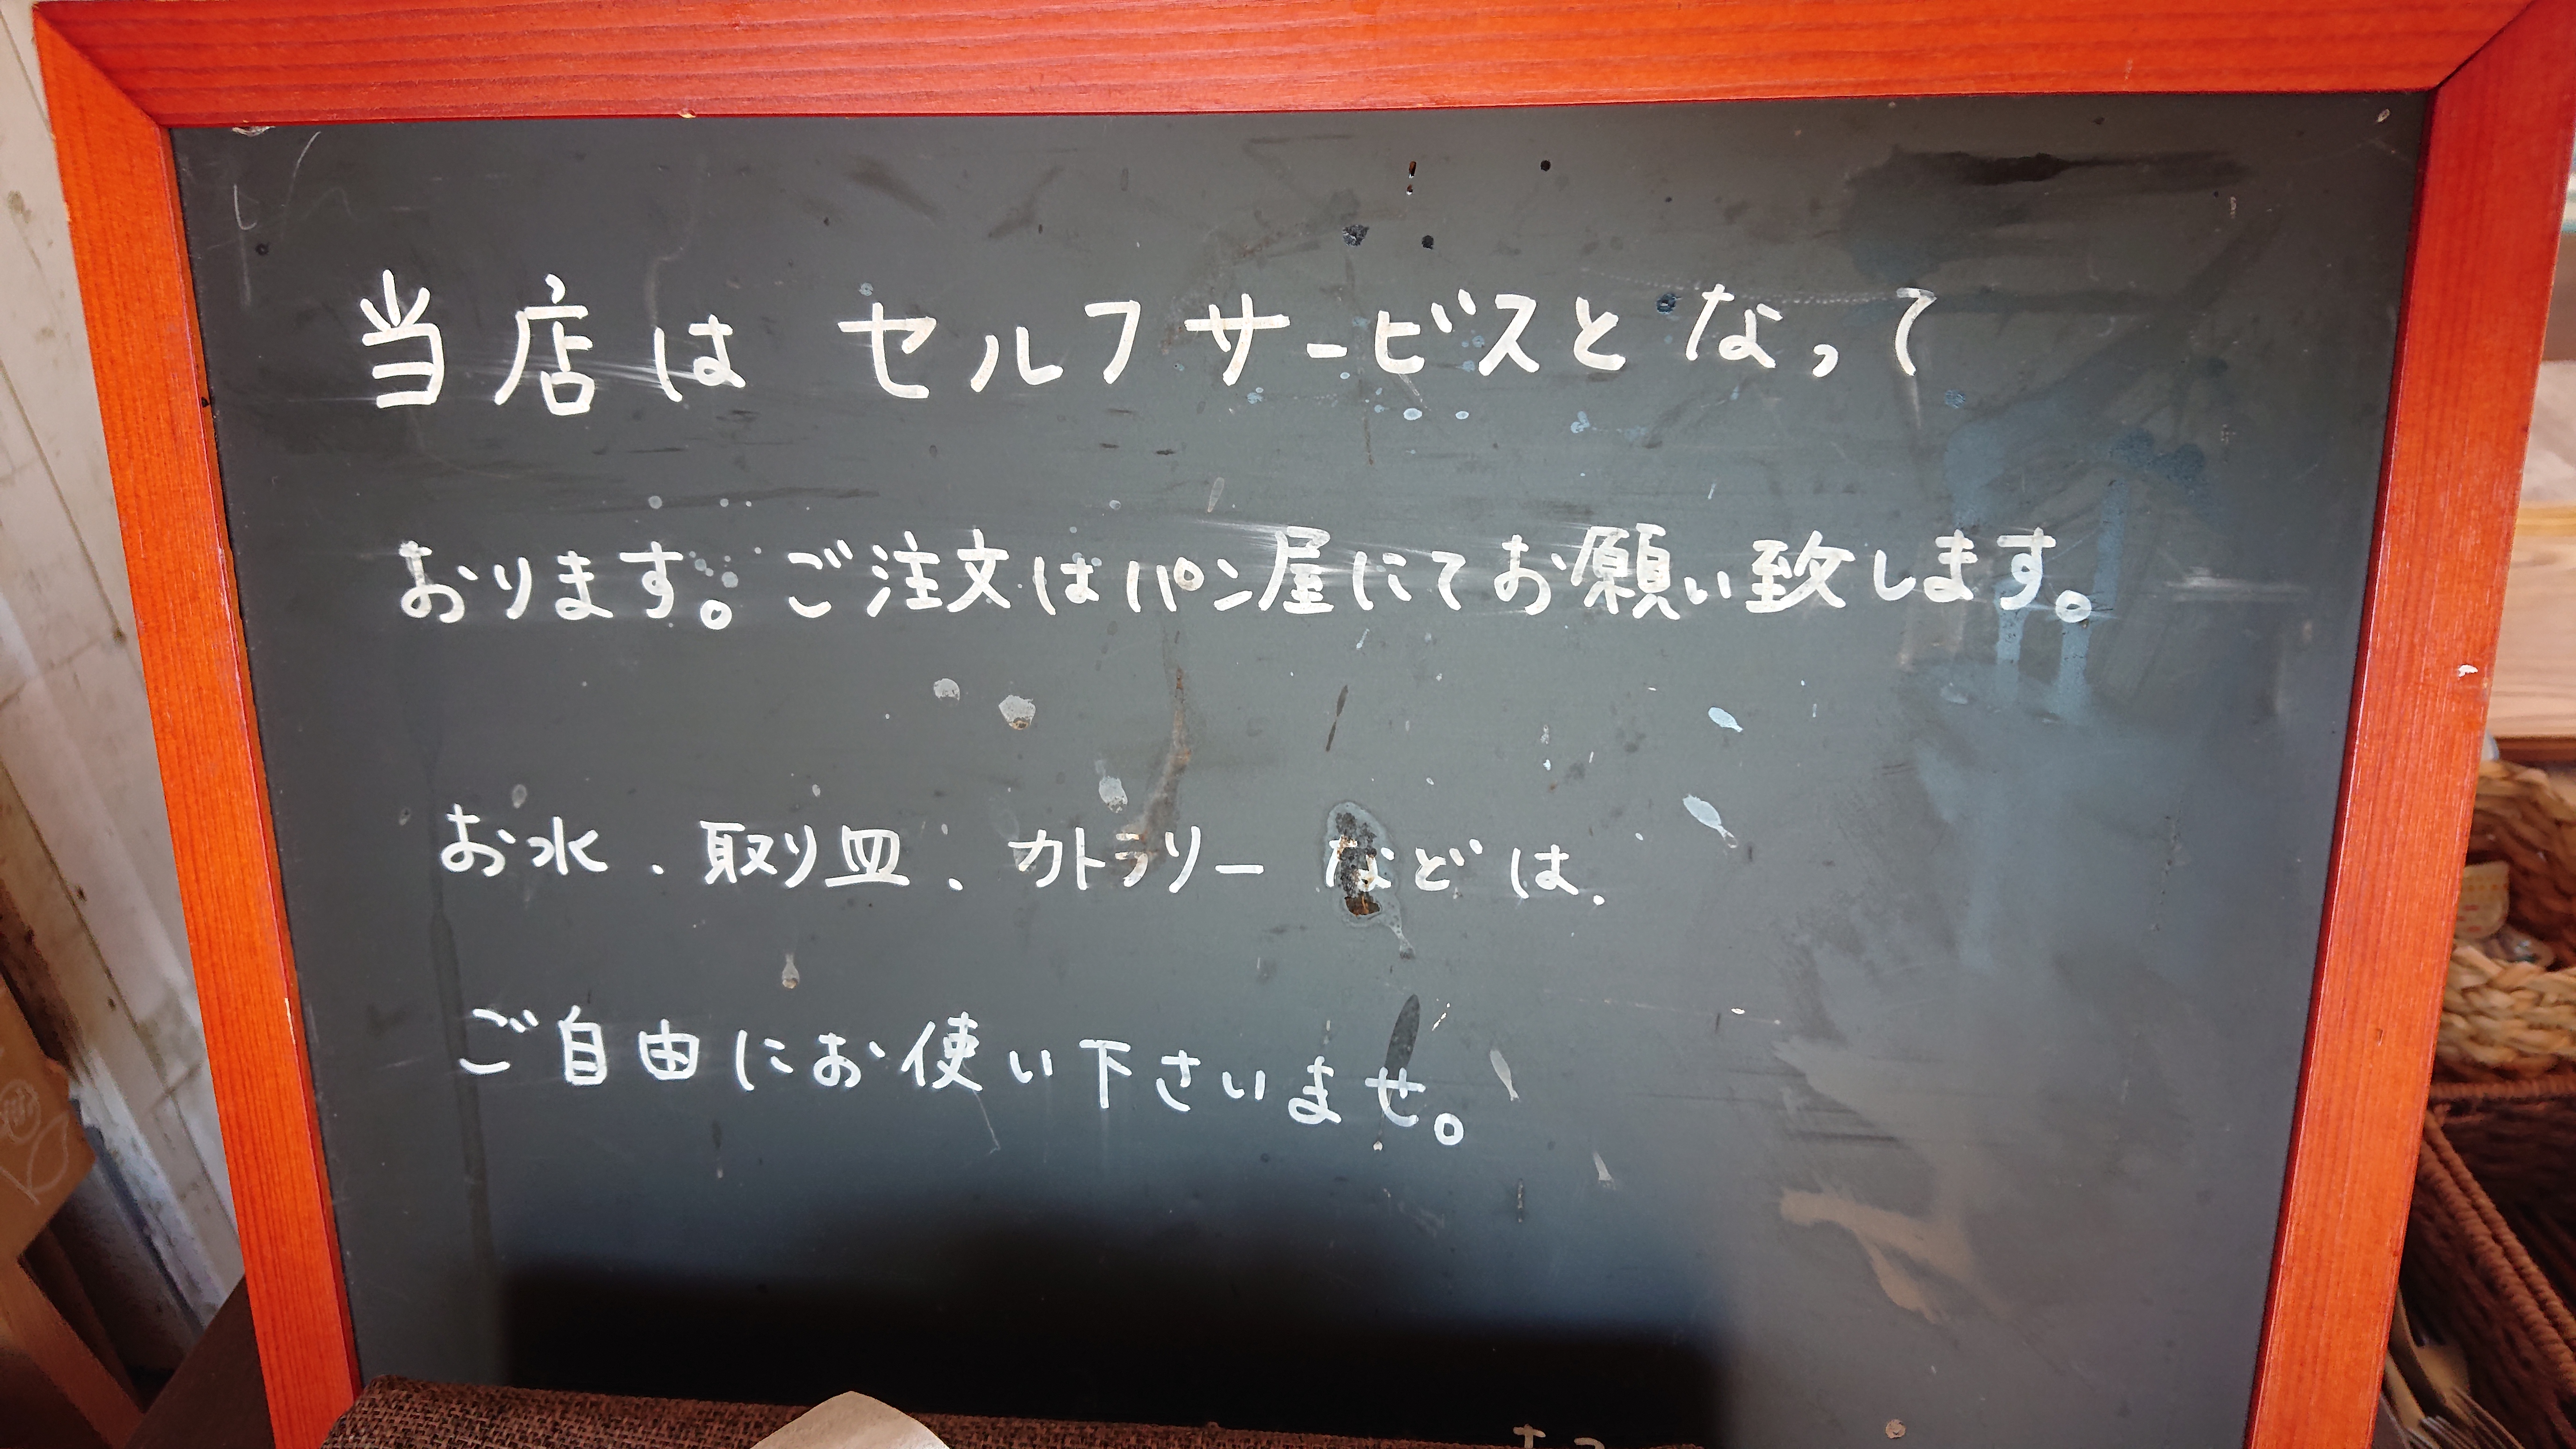 当店は セルフサービスとなって
おります。ご注文はパン屋にてお願い致します。
お水、取り皿、カトラリー などは、
ご自由にお使い下さいませ。